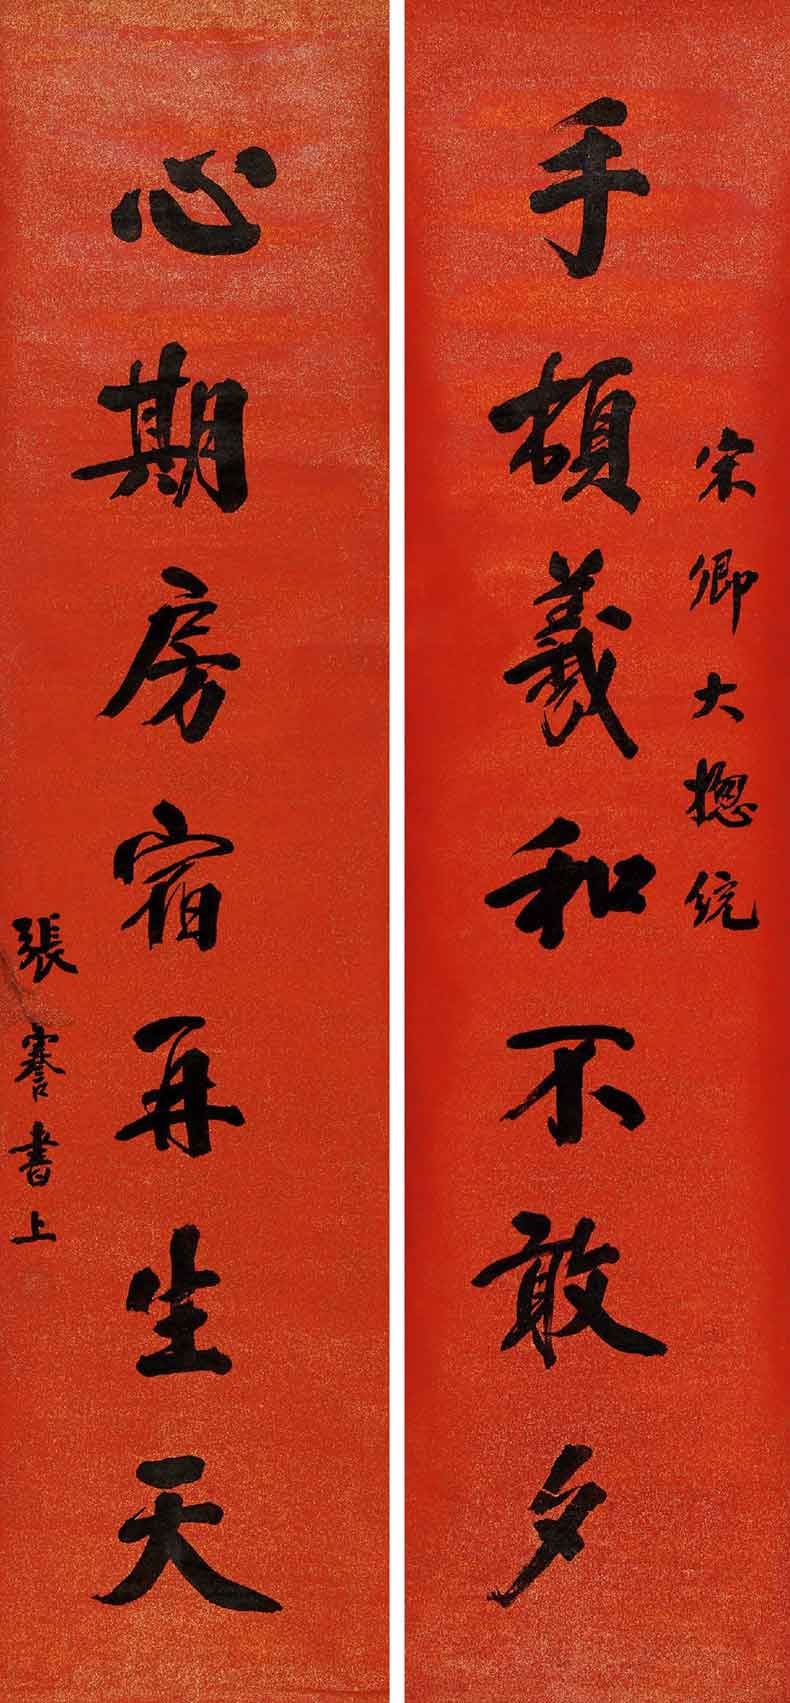 宋卿大揔統
手頓羲和不敢夕
心期房宿再生天
張謇書上